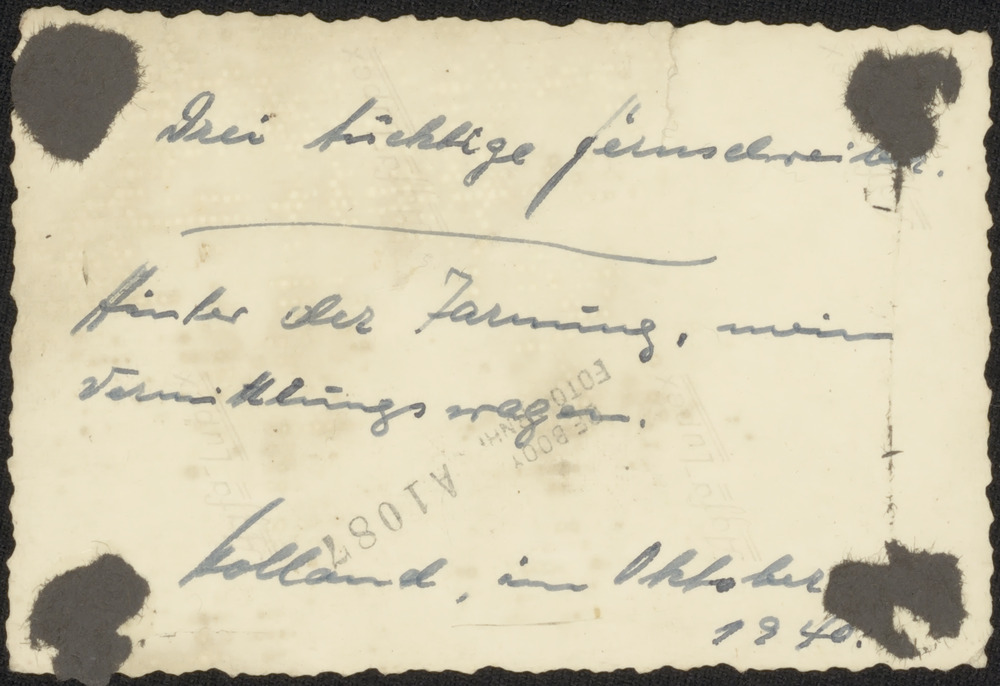 Drei tüchtige Fernschreiber.
Hinter der Tarnung, mein
Vermittlungswagen.
FOTO
DE BOOY
A1087
Holland, im Oktober
1940.